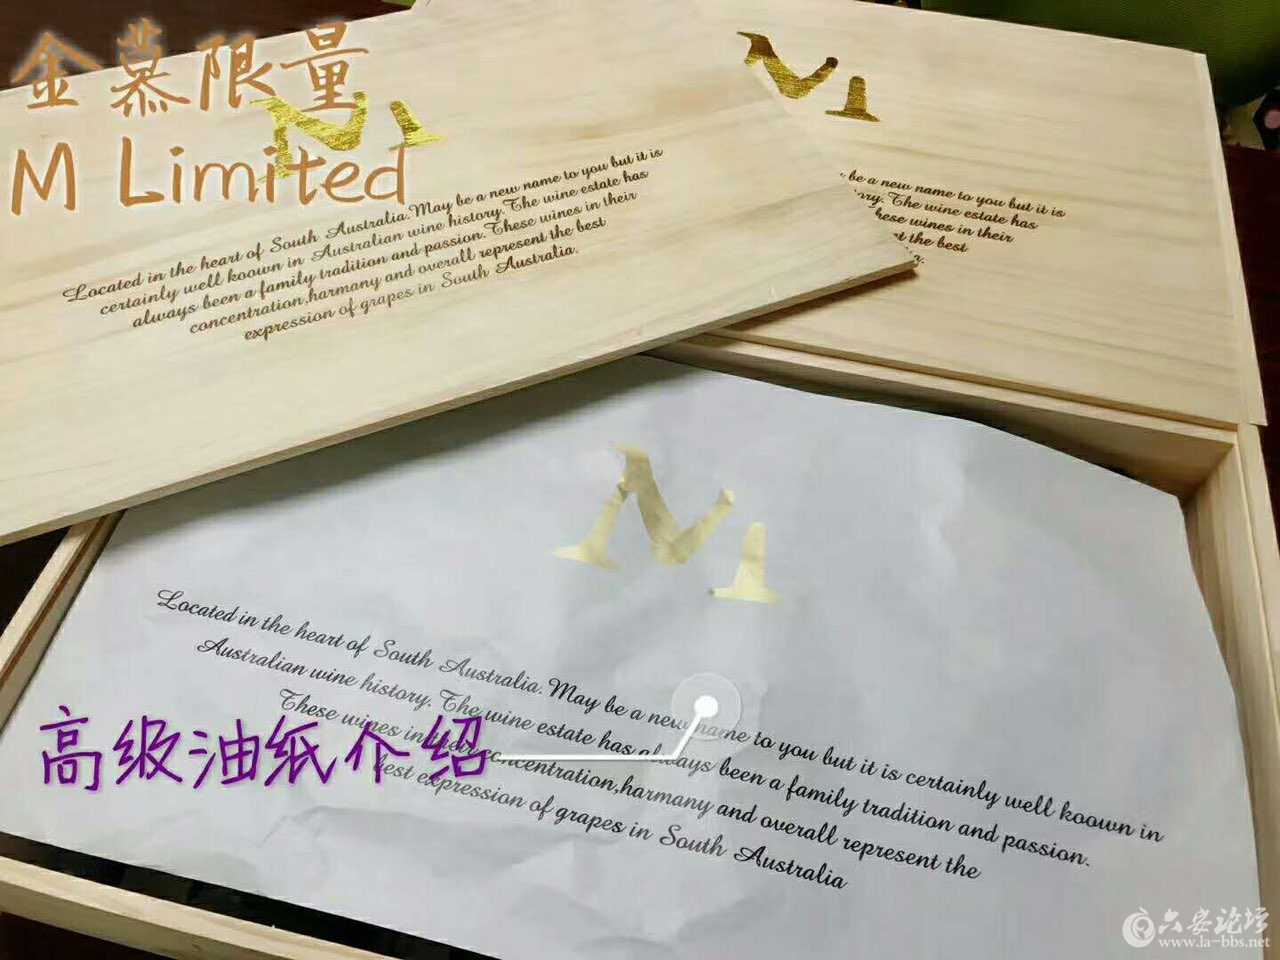 金慕限量
M Limited
M
Located in the heart of South Australia.May be a new name to you but it is
certainly well koown in Australian wine history.The wine estate has
always been a family tradition and passion.These wines in their
concentration,harmany and overall represent the best
expression of grapes in South Australia.
M
be a new name to you but it is
ory.The wine estate has
hese wines in their
nt the best
a.
M
Located in the heart of South Australia.May be a new name to you but it is certainly well koown in
Australian wine history. The wine estate has always been a family tradition and passion.
These wines in their concentration,harmany and overall represent the
best expression of grapes in South Australia
高级油纸介绍
六安论坛
www.la-bbs.net